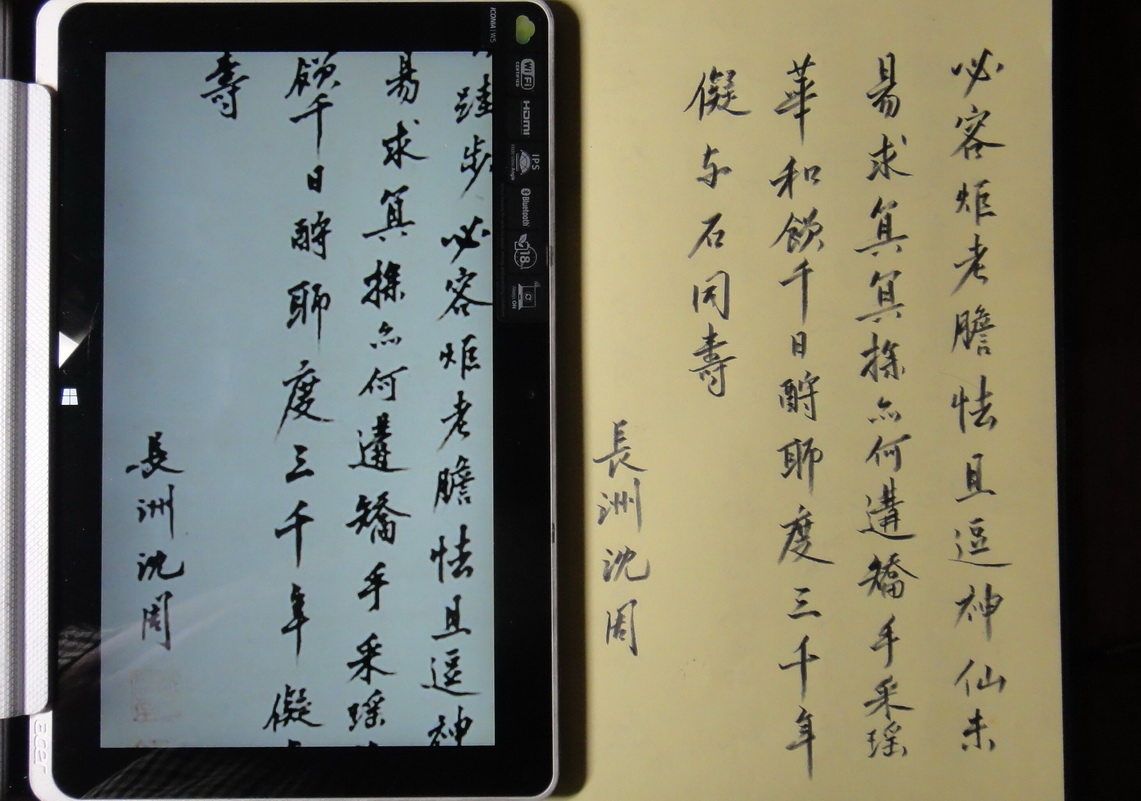 跬步必容炬老膽怯且逗神
易求冥探亦何遘矯手采瑤
飲千日酎聊度三千年儗
壽
長洲沈周
ICONIA W5
WiFi
CERTIFIED
HDMI
IPS
Bluetooth
18
acer
必容炬老膽怯且逗神仙未
易求冥冥探亦何遘矯手采瑤
華和飲千日酎聊度三千年
儗与石同壽
長洲沈周